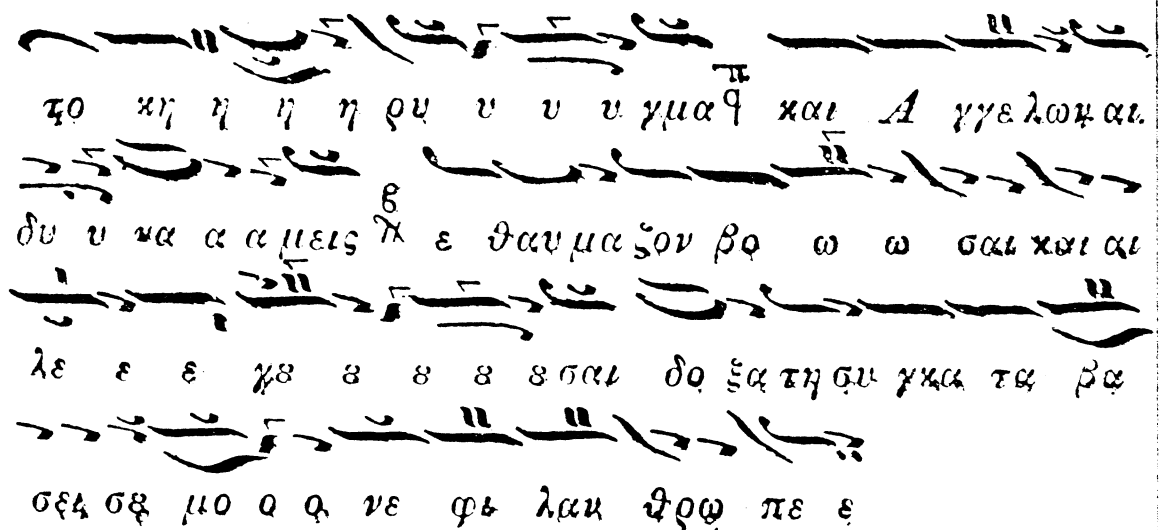 το κη η η η ρυ υ υ υ γμα και Α γγε λων αι
δυ υ κα α α μεις ε θαυ μα ζον βο ω ω σαι και αι
λε ε ε γȣ ȣ ȣ ȣ ȣ σαι δο ξα τη συ γκα τα βα
σει σȣ μο ο ο νε φι λαν θρω πε ε